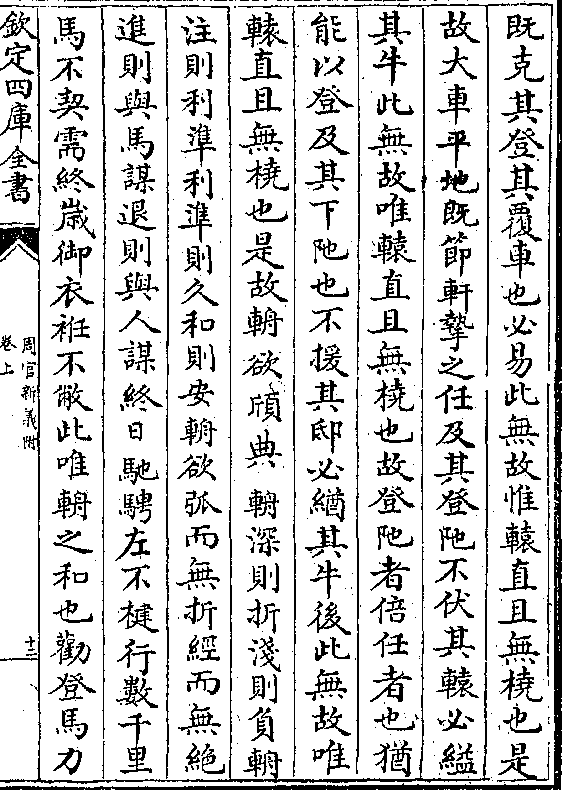 既克其登其覆車也必易此無故惟轅直且無橈也是
故大車平地既節軒摯之任及其登阤不伏其轅必縊
其牛此無故唯轅直且無橈也故登阤者倍任者也猶
能以登及其下阤也不援其邸必緧其牛後此無故唯
轅直且無橈也是故輈欲頎典輈深則折淺則負輈
注則利準利準則久和則安輈欲弧而無折經而無絶
進則與馬謀退則與人謀終日馳騁左不楗行數千里
馬不契需終嵗御衣衽不敝此唯輈之和也勸登馬力
欽定四庫全書
周官新義附
卷上
十三